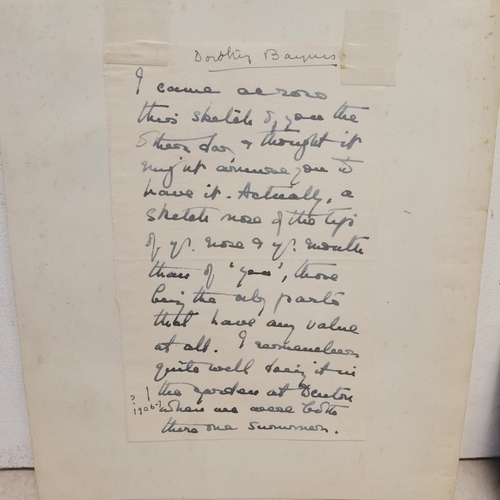 Dorothy Baynes
I came across
this sketch of you the
other day & thought it
might amuse you to
have it. Actually, a
sketch more of the tip
of yr. nose & yr. mouth
than of 'you', those
being the only parts
that have any value
at all. I remember
quite well doing it in
the garden at Denton
? 1906 when we were both
there one summer.